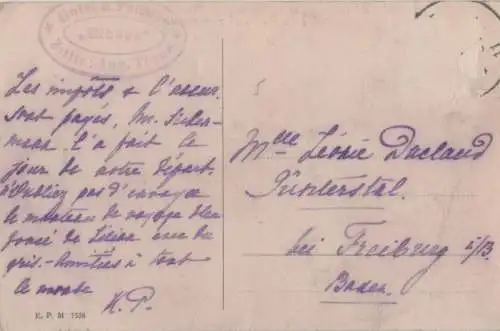 Les impôts & l'assur.
sont payés, M.
mann l'a fait le
jour de notre départ.
N'oubliez pas d'envoyer
le manteau de voyage bleu
foncé de Lilian ou du
gris. - Amitiés à tout
le monde
K. P.
K. P. M 1526
Mlle Léonie Daeland
Günterstal.
bei Freiburg i/B.
Baden.